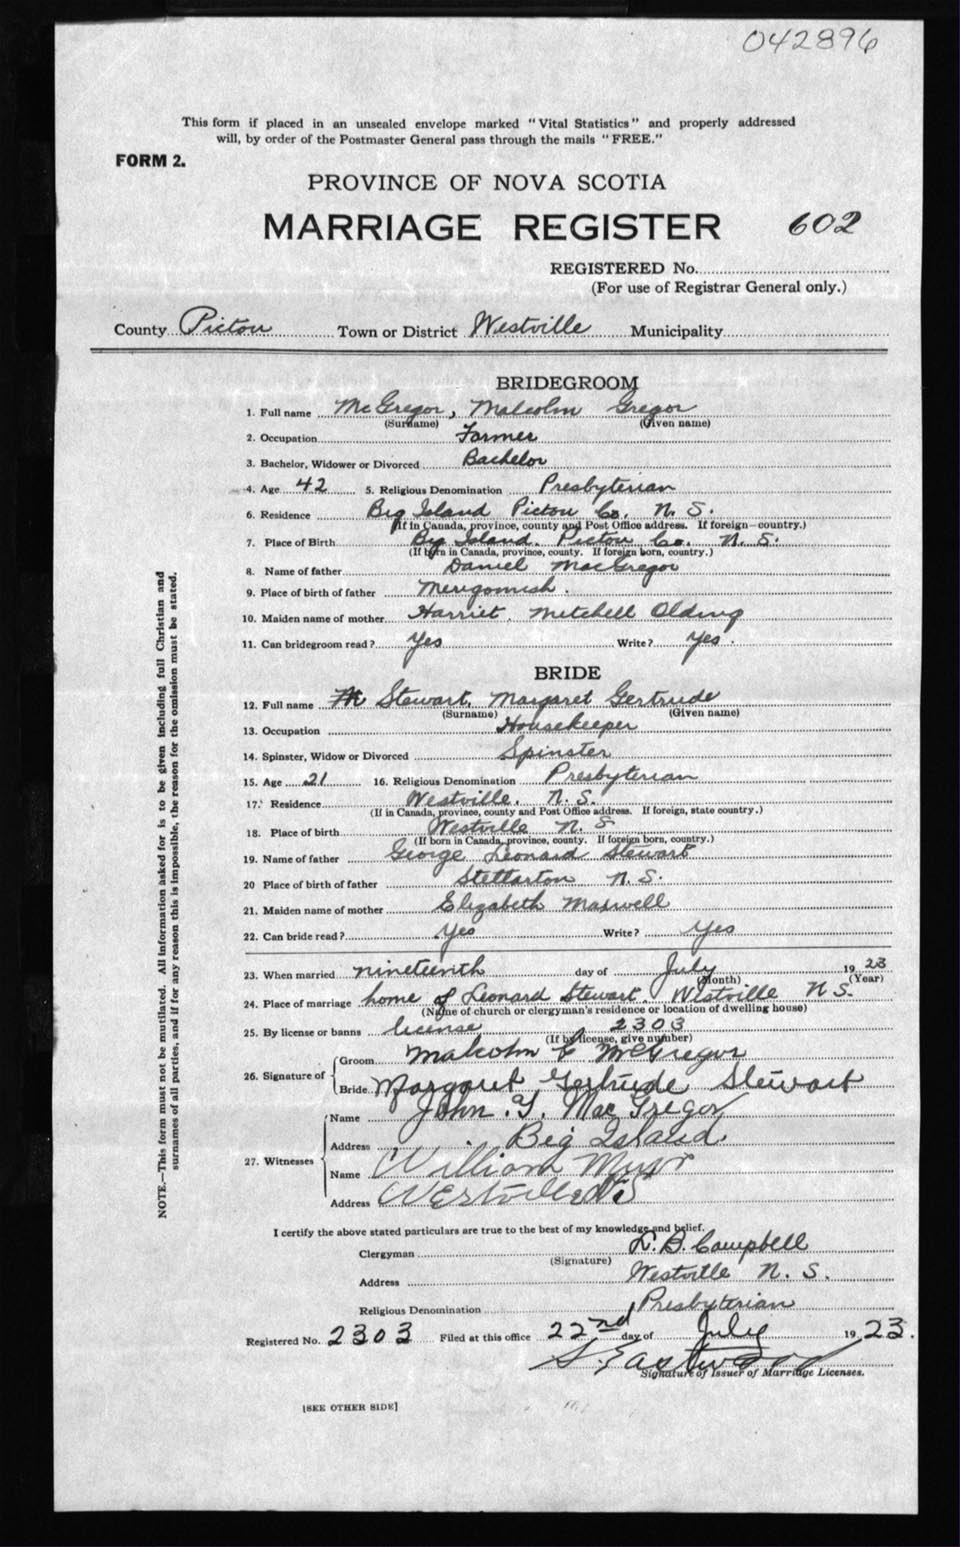 042896
This form if placed in an unsealed envelope marked "Vital Statistics" and properly addressed
will, by order of the Postmaster General pass through the mails "FREE."
FORM 2.
PROVINCE OF NOVA SCOTIA
MARRIAGE REGISTER 602
REGISTERED No.
(For use of Registrar General only.)
County Pictou Town or District Westville Municipality
BRIDEGROOM
1. Full name McGregor, Malcolm Gregor
(Surname) (Given name)
2. Occupation Farmer
3. Bachelor, Widower or Divorced Bachelor
4. Age 42 5. Religious Denomination Presbyterian
6. Residence Big Island Pictou Co. N. S.
(If in Canada, province, county and Post Office address. If foreign—country.)
7. Place of Birth Big Island. Pictou Co. N. S.
(If born in Canada, province, county. If foreign born, country.)
8. Name of father Daniel MacGregor
9. Place of birth of father Merigomish.
10. Maiden name of mother Harriet. Mitchell Olding
11. Can bridegroom read? Yes Write? Yes.
BRIDE
12. Full name Stewart. Margaret Gertrude
(Surname) (Given name)
13. Occupation Housekeeper
14. Spinster, Widow or Divorced Spinster
15. Age 21 16. Religious Denomination Presbyterian
17. Residence Westville. N. S.
(If in Canada, province, county and Post Office address. If foreign, state country.)
18. Place of birth Westville N. S
(If born in Canada, province, county. If foreign born, country.)
19. Name of father George Leonard Stewart
20 Place of birth of father Stellarton N. S.
21. Maiden name of mother Elizabeth Maxwell
22. Can bride read? Yes Write? Yes
23. When married nineteenth day of July 1923
(Month) (Year)
24. Place of marriage home of Leonard Stewart. Westville N S.
(Name of church or clergyman's residence or location of dwelling house)
25. By license or banns license 2303
(If by license, give number)
26. Signature of
Groom Malcolm G McGregor
Bride Margaret Gertrude Stewart
27. Witnesses
Name John. Y. MacGregor
Address Big Island.
Name William
Address Westville NS
I certify the above stated particulars are true to the best of my knowledge and belief.
Clergyman L. B. Campbell
(Signature)
Address Westville N. S.
Religious Denomination Presbyterian
Registered No. 2303 Filed at this office 22nd day of July 1923.
S. Eastwood
Signature of Issuer of Marriage Licenses.
[SEE OTHER SIDE]
NOTE.—This form must not be mutilated. All information asked for is to be given including full Christian and
surnames of all parties, and if for any reason this is impossible, the reason for the omission must be stated.